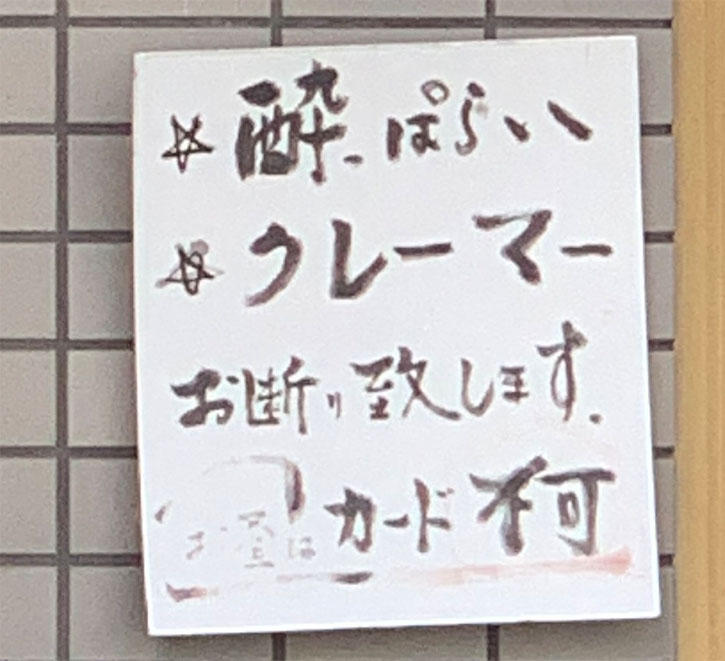 ☆酔っぱらい
☆クレーマー
お断り致します.
お昼は カード不可